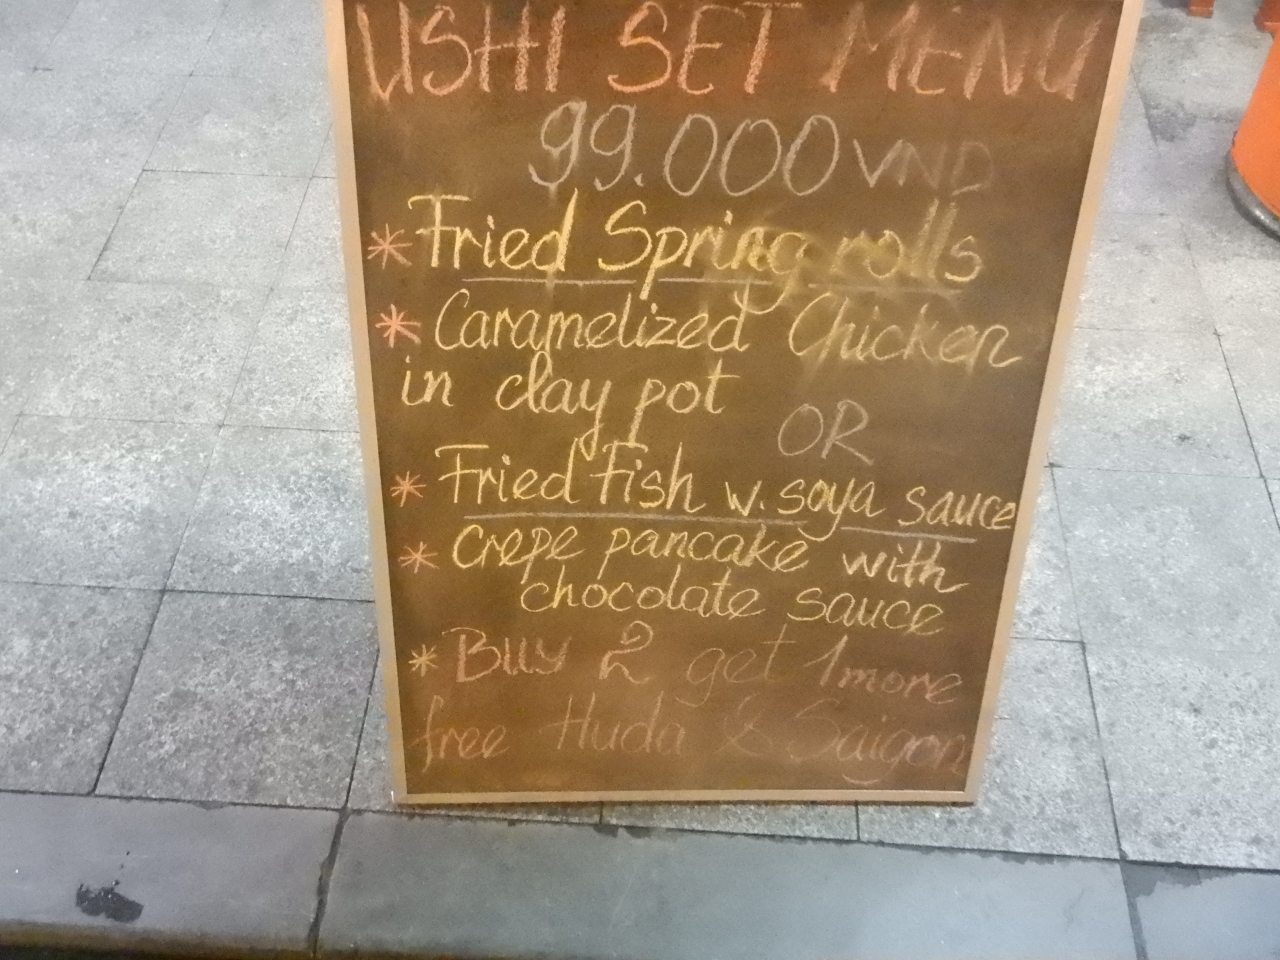 USHI SET MENU
99.000 VND
* Fried Spring rolls
* Caramelized Chicken
in clay pot
OR
* Fried Fish w. soya sauce
* Crepe pancake with
chocolate sauce
* Buy 2 get 1 more
free Huda & Saigon